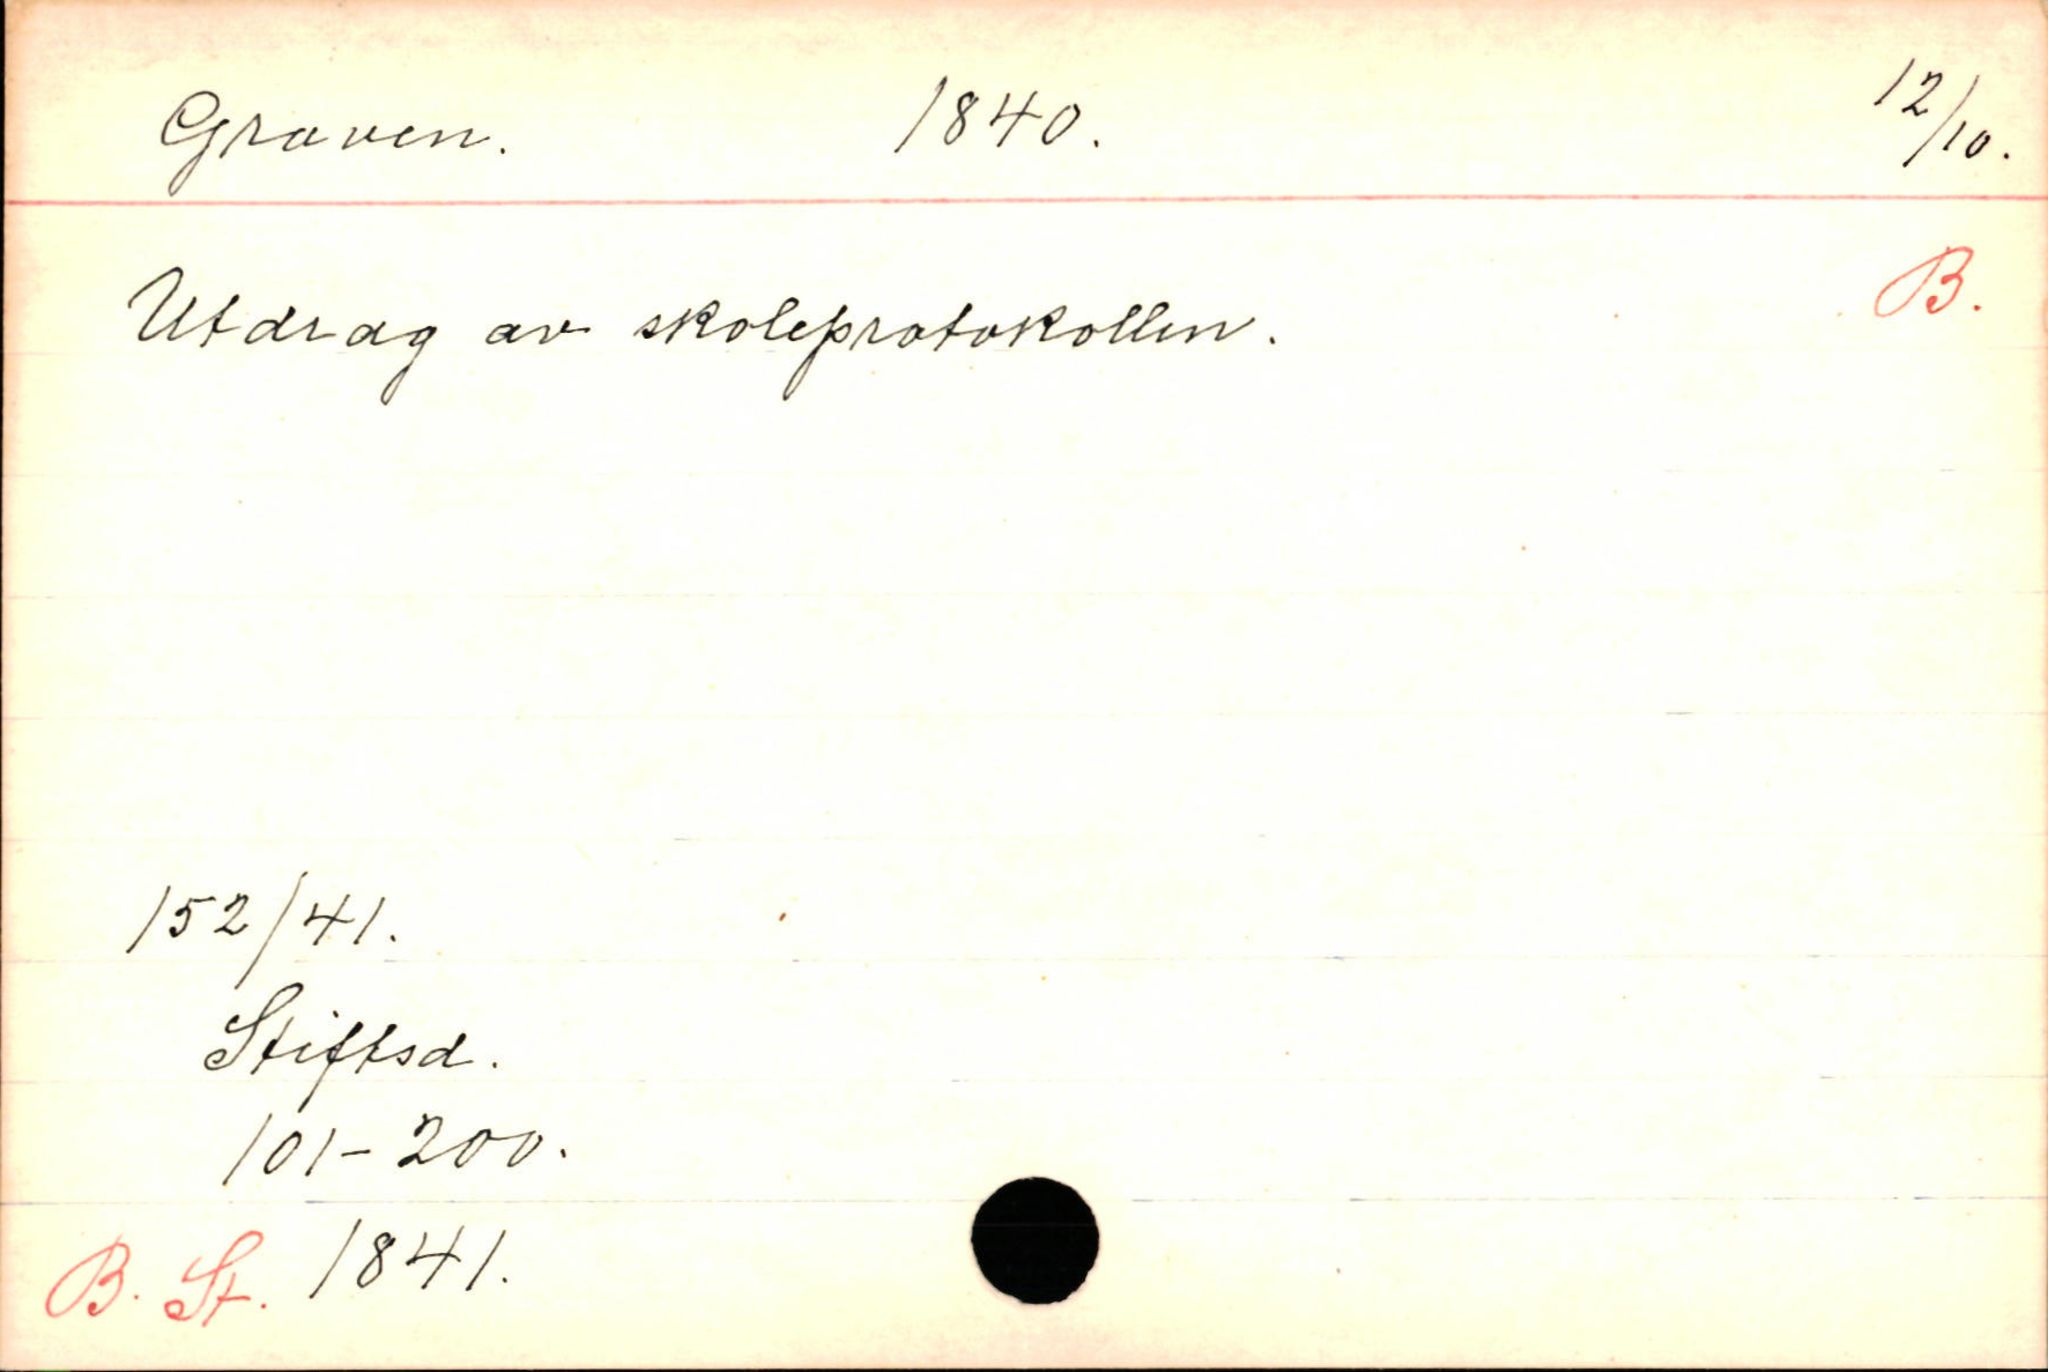 Graven. 1840. 12/10.
B.
Utdrag av skoleprotokollen.
152/41.
Stiftsd.
101-200.
B. St. 1841.